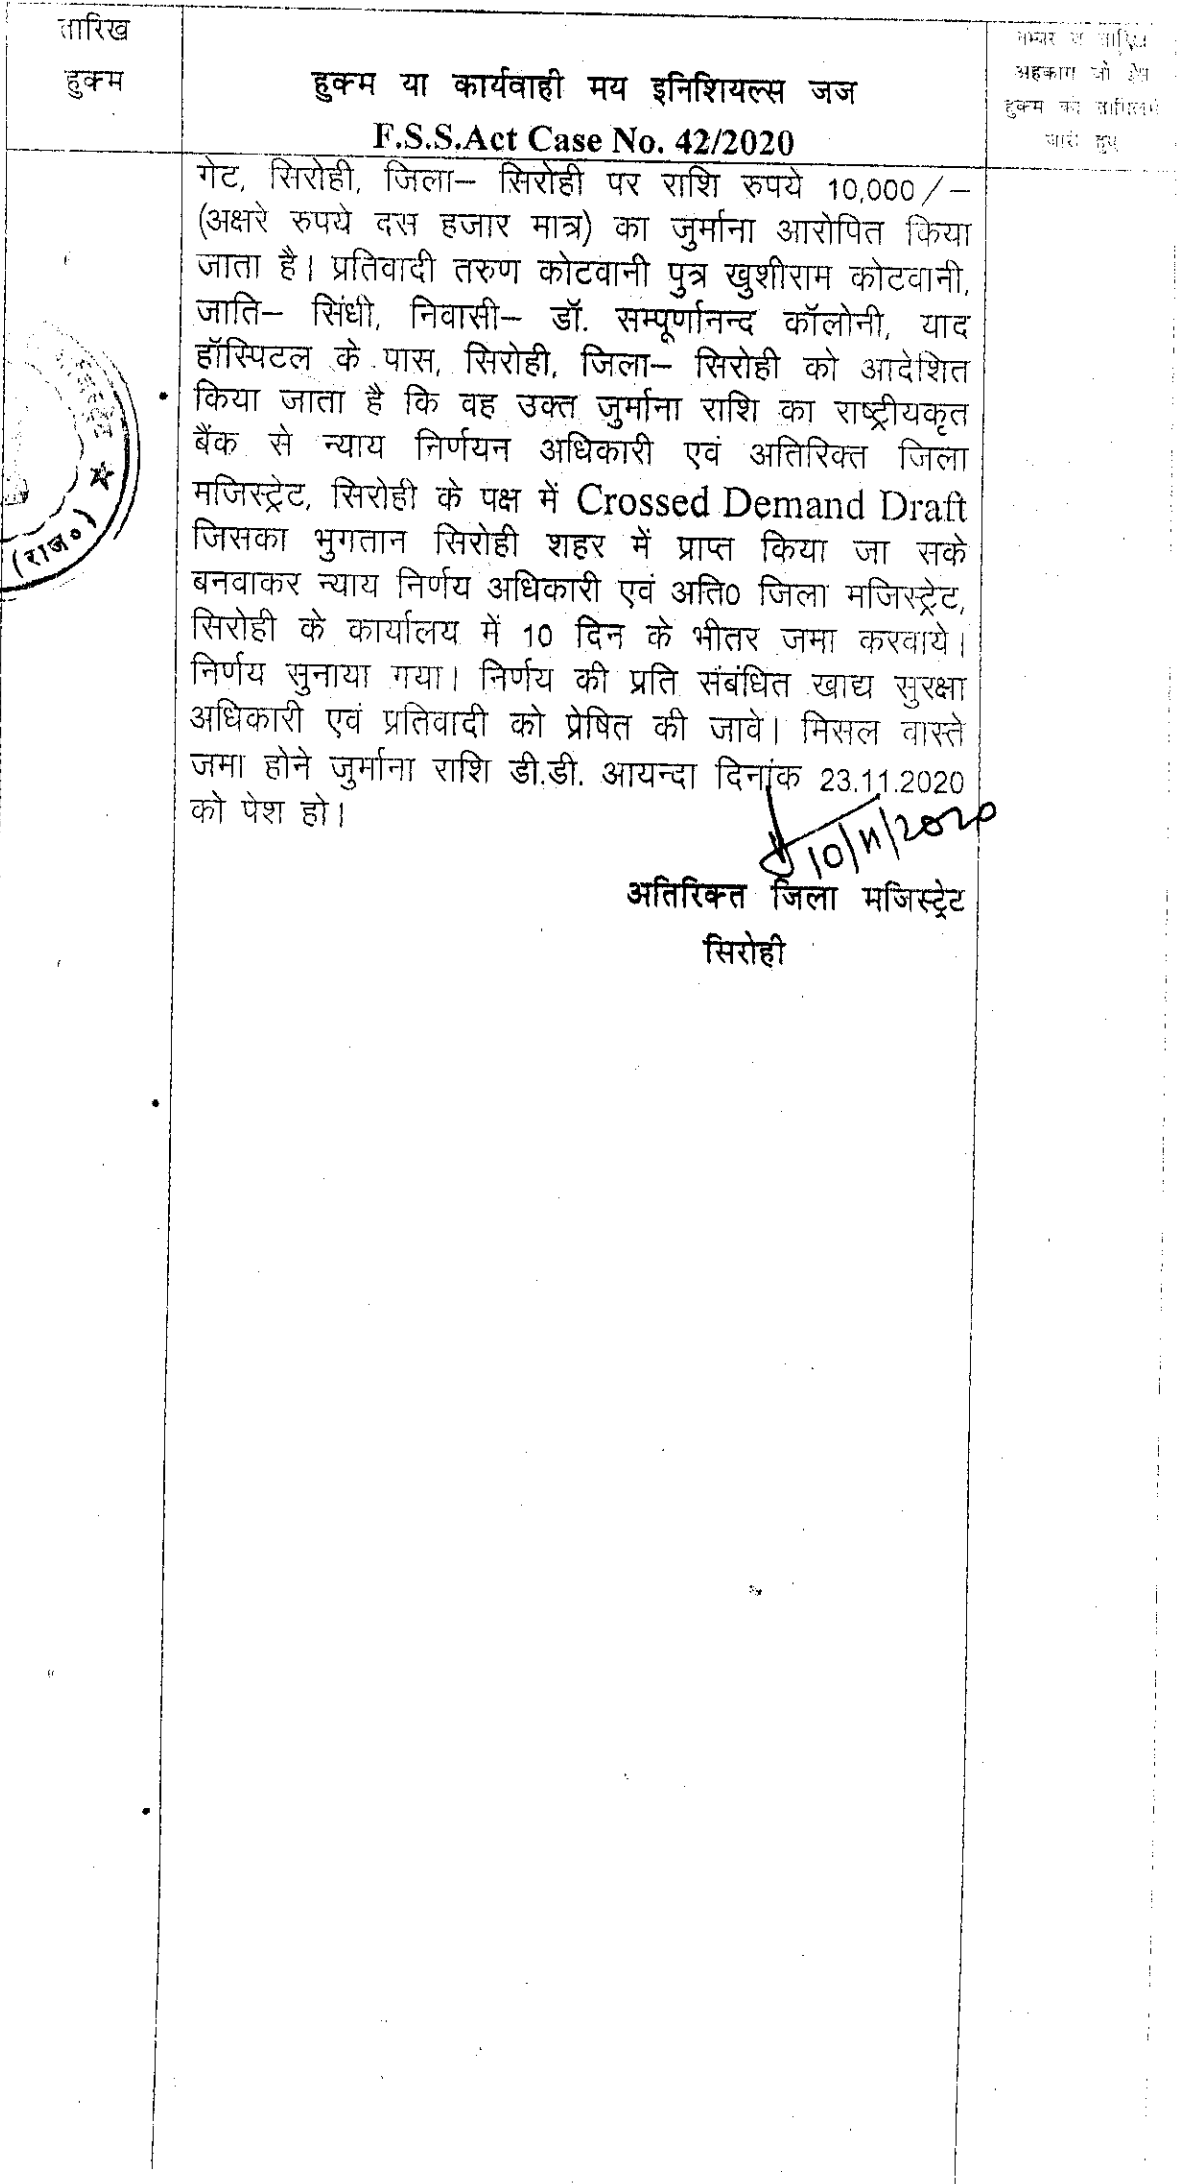 तारिख
हुक्म
हुक्म या कार्यवाही मय इनिशियल्स जज
F.S.S.Act Case No. 42/2020
अहकाम जो इस
जारी हुए
गेट, सिरोही, जिला– सिरोही पर राशि रुपये 10,000/–
(अक्षरे रुपये दस हजार मात्र) का जुर्माना आरोपित किया
जाता है। प्रतिवादी तरुण कोटवानी पुत्र खुशीराम कोटवानी,
जाति– सिंधी, निवासी– डॉ. सम्पूर्णानन्द कॉलोनी, याद
हॉस्पिटल के पास, सिरोही, जिला– सिरोही को आदेशित
किया जाता है कि वह उक्त जुर्माना राशि का राष्ट्रीयकृत
बैंक से न्याय निर्णयन अधिकारी एवं अतिरिक्त जिला
मजिस्ट्रेट, सिरोही के पक्ष में Crossed Demand Draft
जिसका भुगतान सिरोही शहर में प्राप्त किया जा सके
बनवाकर न्याय निर्णय अधिकारी एवं अति0 जिला मजिस्ट्रेट,
सिरोही के कार्यालय में 10 दिन के भीतर जमा करवाये।
निर्णय सुनाया गया। निर्णय की प्रति संबंधित खाद्य सुरक्षा
अधिकारी एवं प्रतिवादी को प्रेषित की जावे। मिसल वास्ते
जमा होने जुर्माना राशि डी.डी. आयन्दा दिनांक 23.11.2020
को पेश हो।
10/11/2020
अतिरिक्त जिला मजिस्ट्रेट
सिरोही
(राज०)